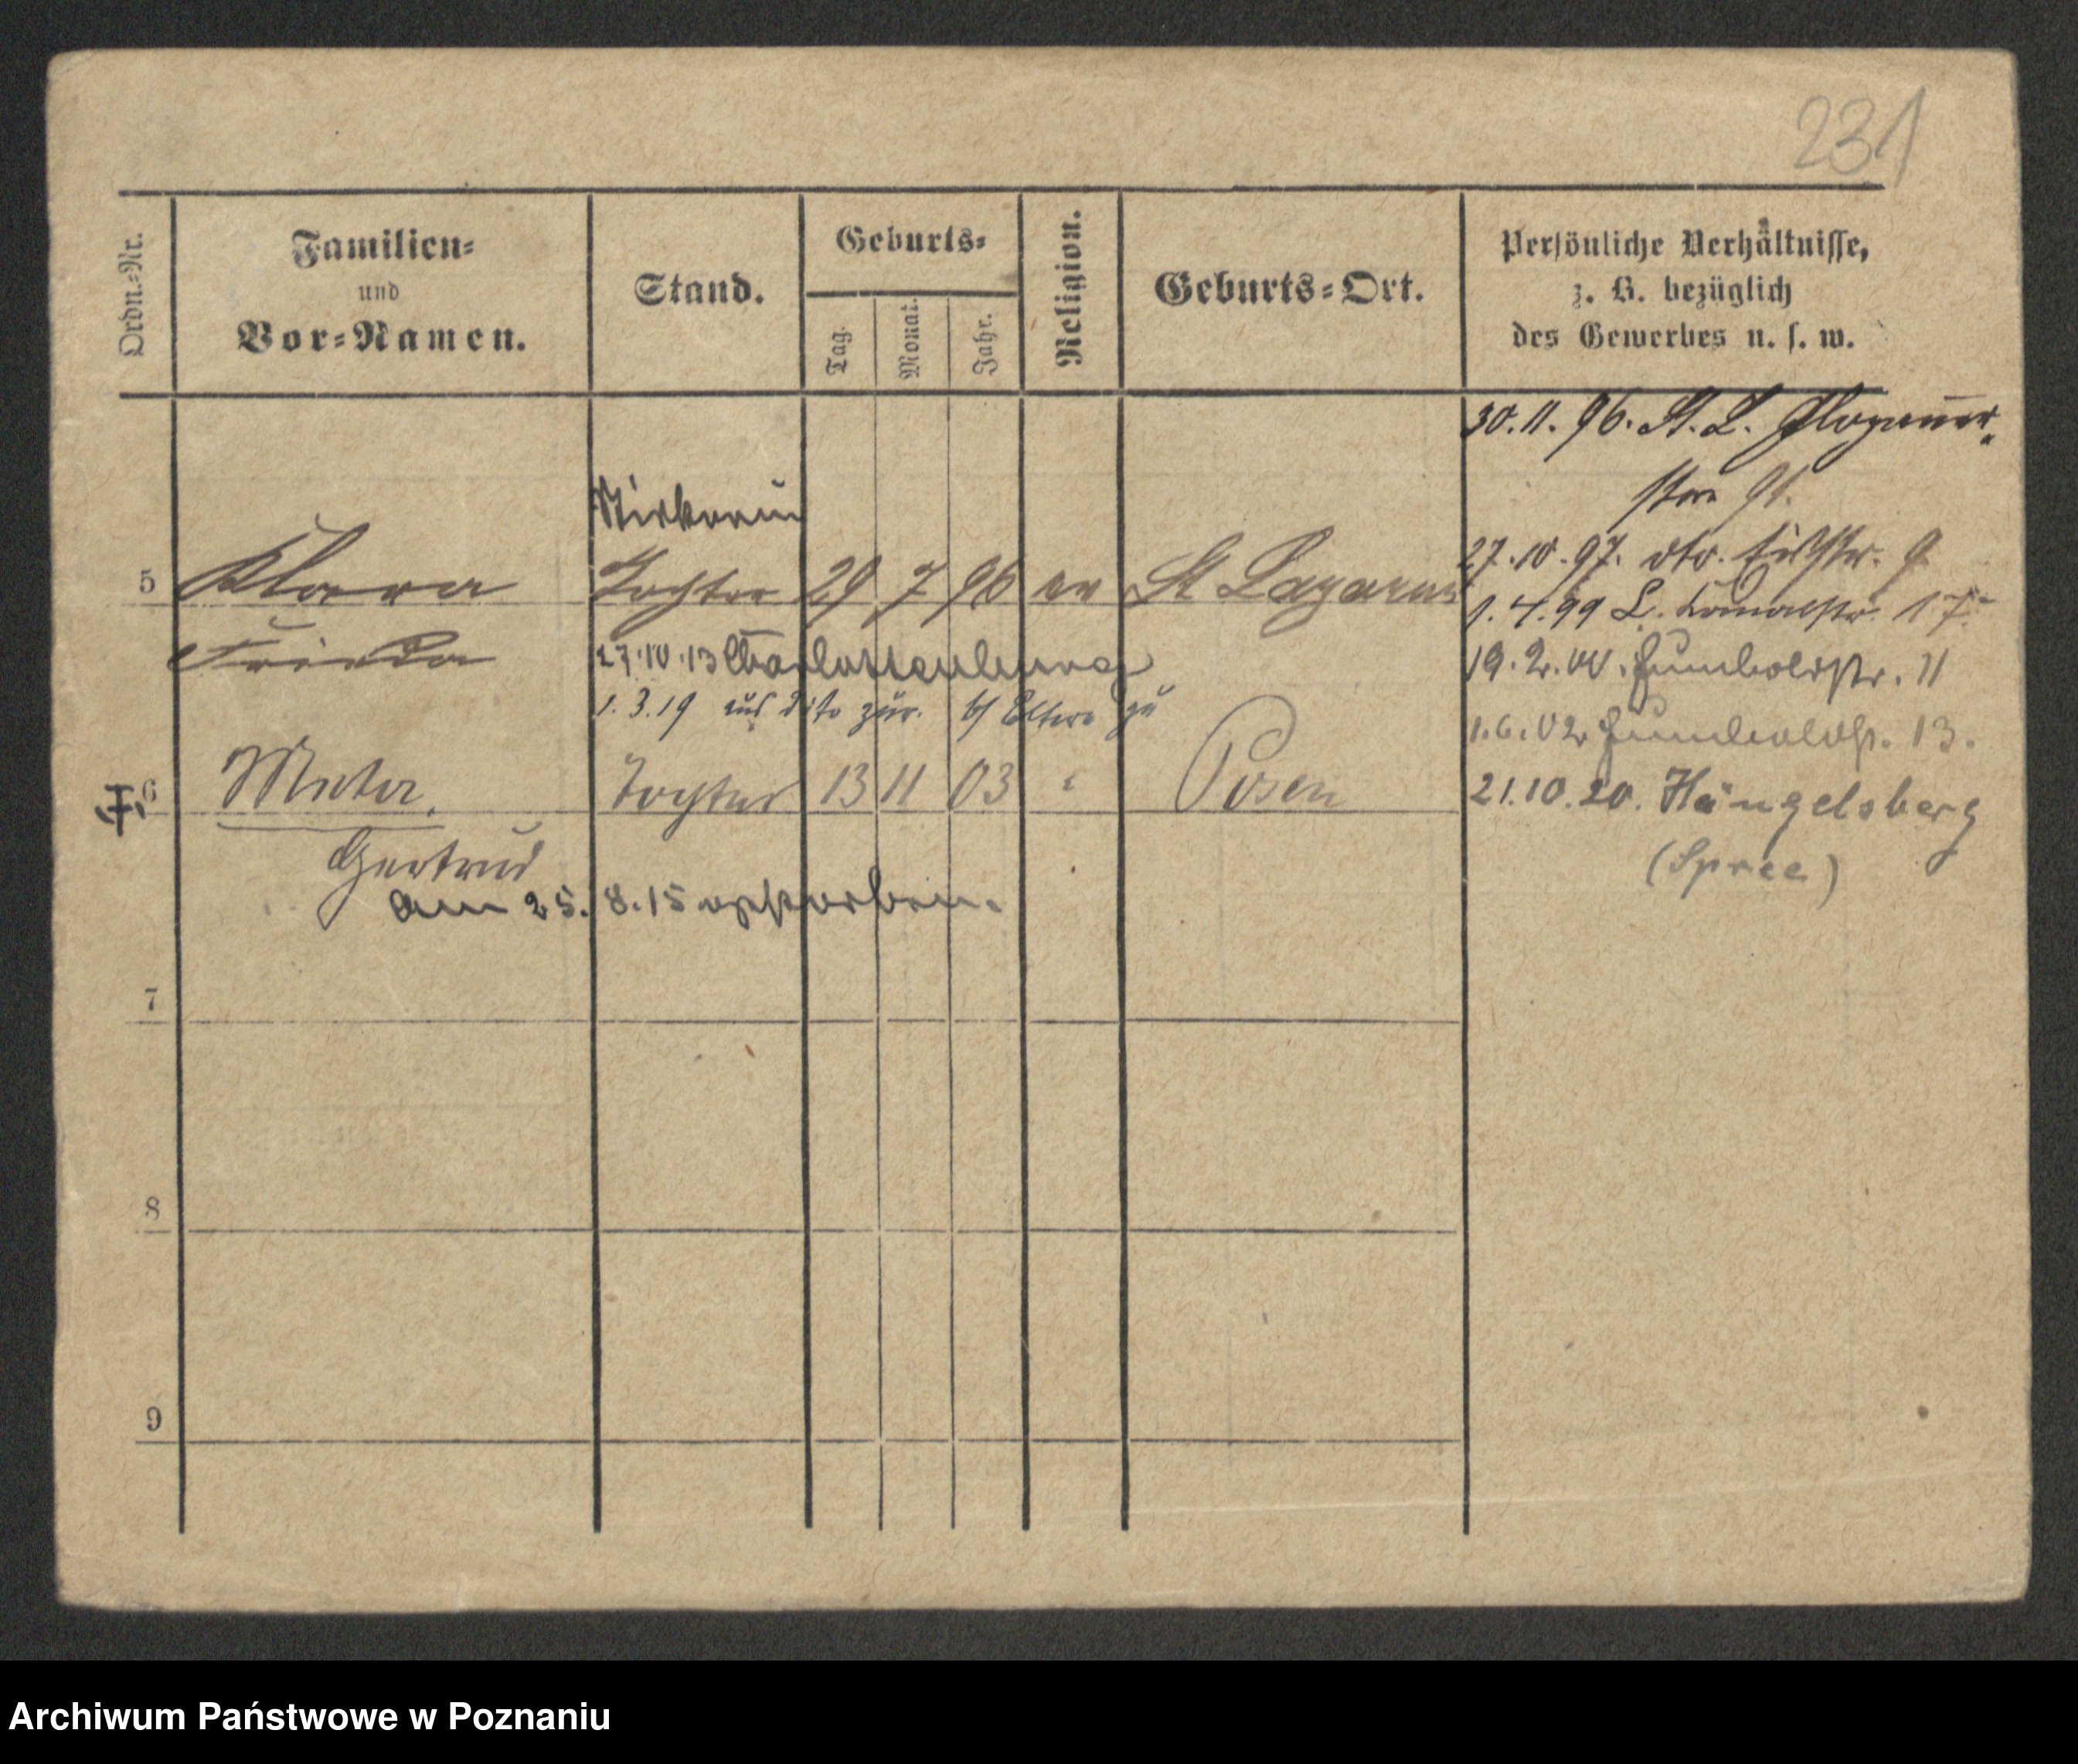 231
Ordn.=Nr.
Familien=
und
Vor=Namen.
Stand.
Geburts=
Tag.
Monat.
Jahr.
Religion.
Geburts=Ort.
Persönliche Verhältnisse,
z. B. bezüglich
des Gewerbes u. s. w.
30.11.96. St. L. Glogauer
str 91.
27.10.97. dto. 9
5 Klara Tochter 29 7 96 ev St Lazarus
1.4.99 L. 17.
Frieda 27.10.13 Charlottenburg
19.2.00. Humboldtstr. 11
1.3.19 aus dito zur. b/ Eltern zu
1.6.02 Humboldtstr. 13.
6 Meta, Tochter 13 11 03 " Posen
21.10.20. Hängelsberg
(Spree)
Gertrud
am 25.8.15 verstorben.
7
8
9
Archiwum Państwowe w Poznaniu